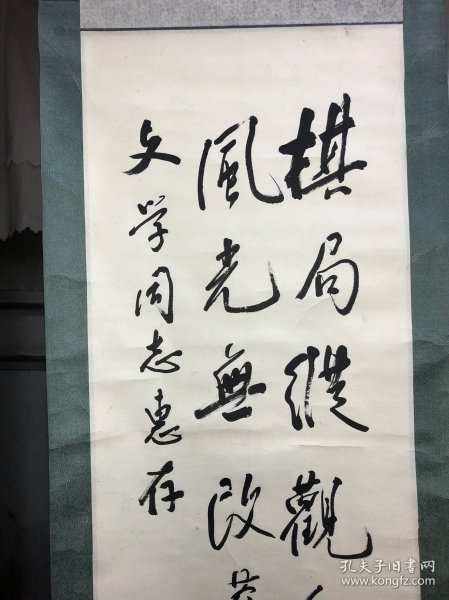 棋局縱觀
風光無改
文学同志惠存
孔夫子旧书网
www.kongfz.com